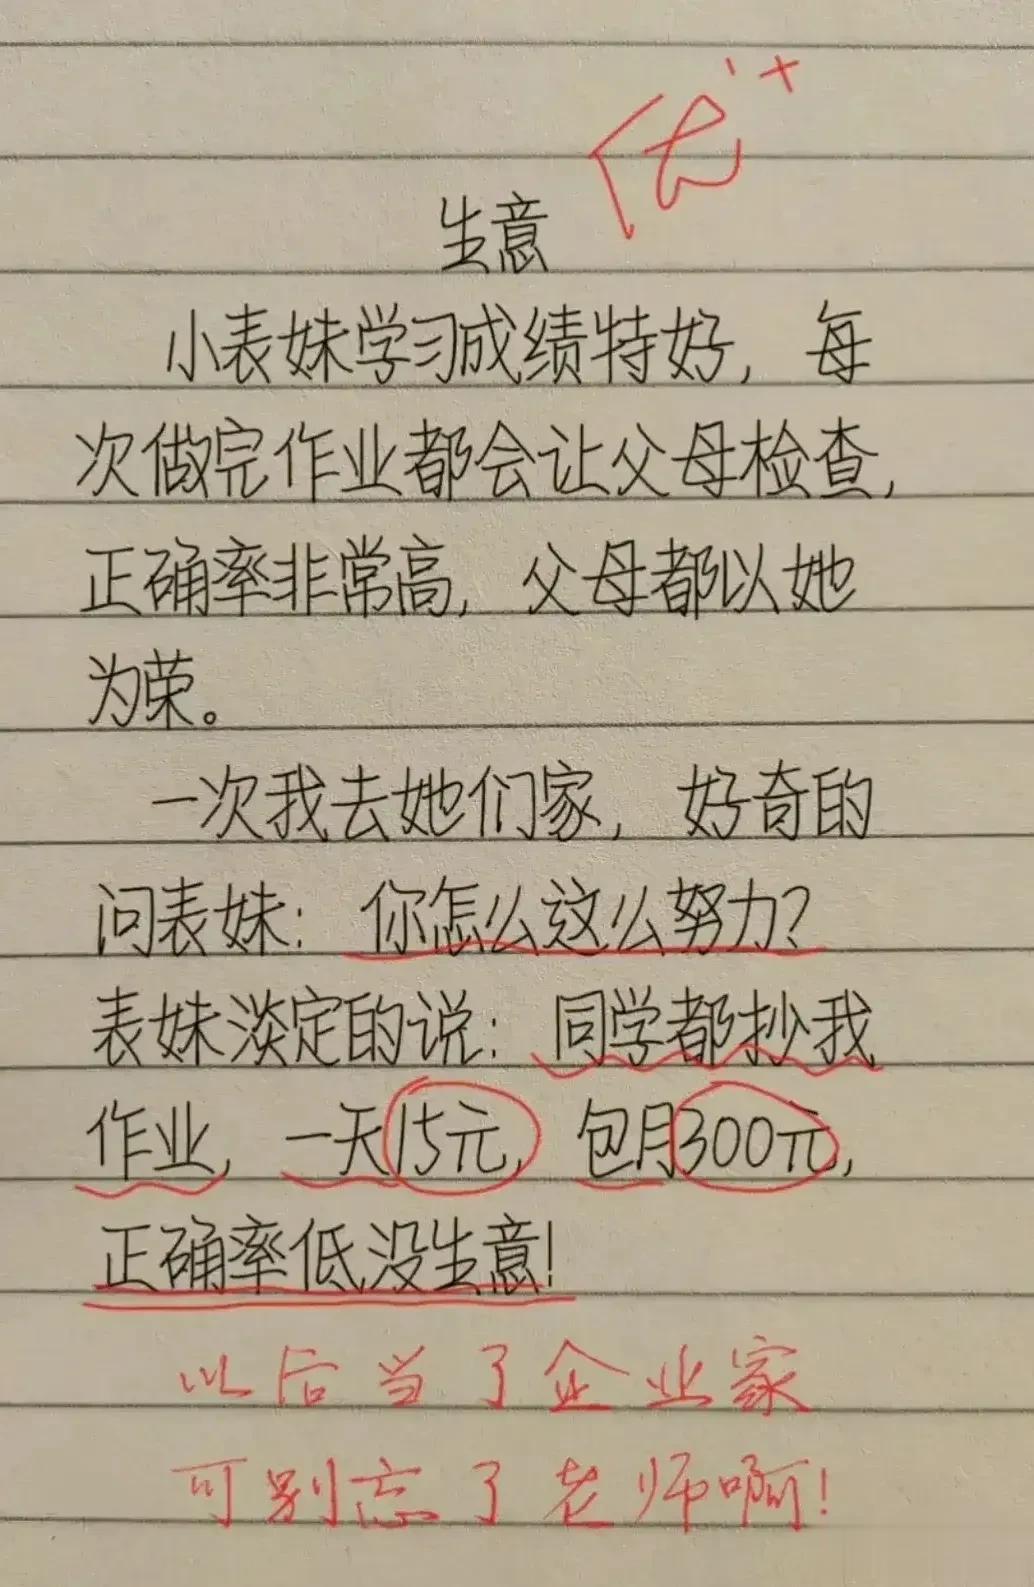 优+
生意
小表妹学习成绩特好，每
次做完作业都会让父母检查，
正确率非常高，父母都以她
为荣。
一次我去她们家，好奇的
问表妹：你怎么这么努力？
表妹淡定的说：同学都抄我
作业，一天15元，包月300元，
正确率低没生意！
以后当了企业家
可别忘了老师啊！